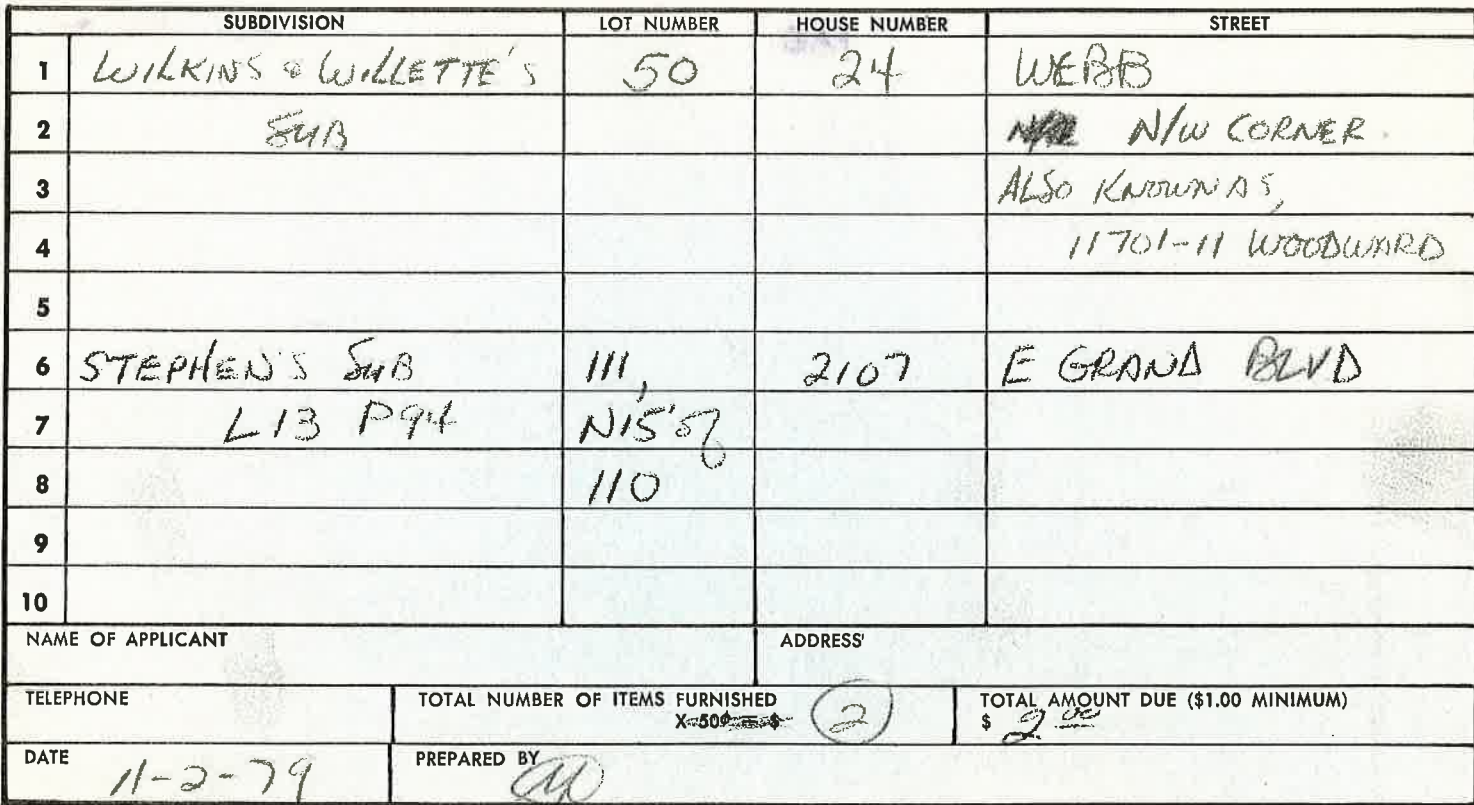 SUBDIVISION LOT NUMBER HOUSE NUMBER STREET
1 WILKINS & WILLETTE'S 50 24 WEBB
2 SUB N/W CORNER
3 ALSO KNOWN AS,
4 11701-11 WOODWARD
5
6 STEPHEN'S SUB 111, 2107 E GRAND BLVD
7 L13 P94 N15' of
8 110
9
10
NAME OF APPLICANT ADDRESS
TELEPHONE TOTAL NUMBER OF ITEMS FURNISHED TOTAL AMOUNT DUE ($1.00 MINIMUM)
X 50¢ = $ 2 $ 2 00
DATE 11-2-79 PREPARED BY